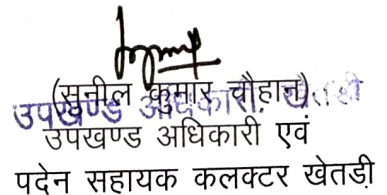 (सुनील कुमार चौहान)
उपखण्ड अधिकारी, खेतडी
उपखण्ड अधिकारी एवं
पदेन सहायक कलक्टर खेतडी